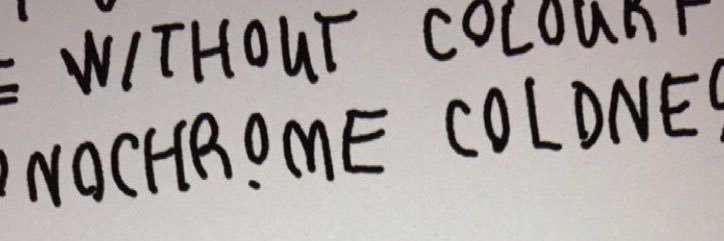 WITHOUT COLOUR
NOCHROME COLDNE